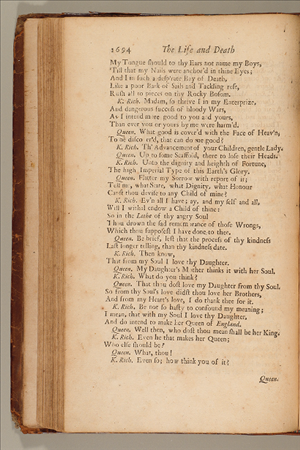 1694 The Life and Death
My Tongue should to thy Ears not name my Boys,
'Till that my Nails were anchor'd in thine Eyes;
And I in such a desp'rate Bay of Death,
Like a poor Bark of Sails and Tackling reft,
Rush all to pieces on thy Rocky Bosom.
K. Rich. Madam, so thrive I in my Enterprize,
And dangerous success of bloody Wars,
As I intend more good to you and yours,
Than ever you or yours by me were harm'd.
Queen. What good is cover'd with the Face of Heav'n,
To be discover'd, that can do me good?
K. Rich. Th' Advancement of your Children, gentle Lady.
Queen. Up to some Scaffold, there to lose their Heads.
K. Rich. Unto the dignity and heighth of Fortune,
The high Imperial Type of this Earth's Glory.
Queen. Flatter my Sorrow with report of it;
Tell me, what State, what Dignity, what Honour
Canst thou devise to any Child of mine?
K. Rich. Ev'n all I have; ay, and my self and all,
Will I withal endow a Child of thine:
So in the Lethe of thy angry Soul
Thou drown the sad remembrance of those Wrongs,
Which thou supposest I have done to thee.
Queen. Be brief, lest that the process of thy kindness
Last longer telling, than thy kindness date.
K. Rich. Then know,
That from my Soul I love thy Daughter.
Queen. My Daughter's Mother thinks it with her Soul.
K. Rich. What do you think?
Queen. That thou dost love my Daughter from thy Soul.
So from thy Soul's love didst thou love her Brothers,
And from my Heart's love, I do thank thee for it.
K. Rich. Be not so hasty to confound my meaning;
I mean, that with my Soul I love thy Daughter,
And do intend to make her Queen of England.
Queen. Well then, who dost thou mean shall be her King?
K. Rich. Even he that makes her Queen;
Who else should be?
Queen. What, thou?
K. Rich. Even so; how think you of it?
Queen.